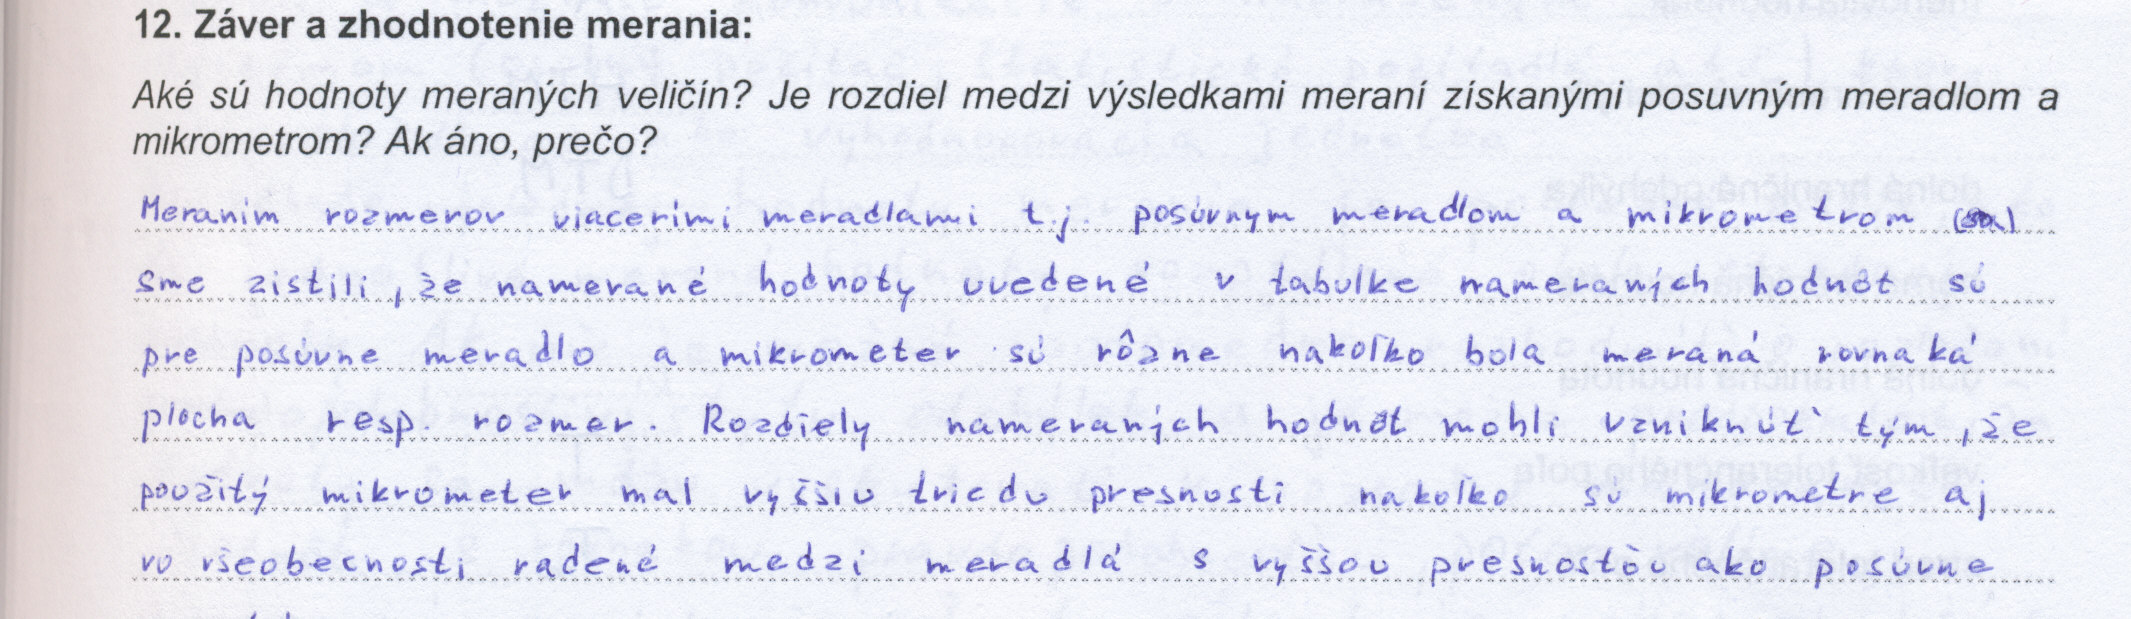 12. Záver a zhodnotenie merania:
Aké sú hodnoty meraných veličín? Je rozdiel medzi výsledkami meraní získanými posuvným meradlom a
mikrometrom? Ak áno, prečo?
Meraním rozmerov viacerími meradlami t.j. posúvnym meradlom a mikrometrom (sa)
sme zistili, že namerané hodnoty uvedené v tabulke nameraných hodnôt sú
pre posúvne meradlo a mikrometer sú rôzne nakoľko bola meraná rovnaká
plocha resp. rozmer. Rozdiely nameraných hodnôt mohli vzniknúť tým, že
použitý mikrometer mal vyššiu triedu presnosti nakoľko sú mikrometre aj
vo všeobecnosti radené medzi meradlá s vyššou presnosťou ako posúvne